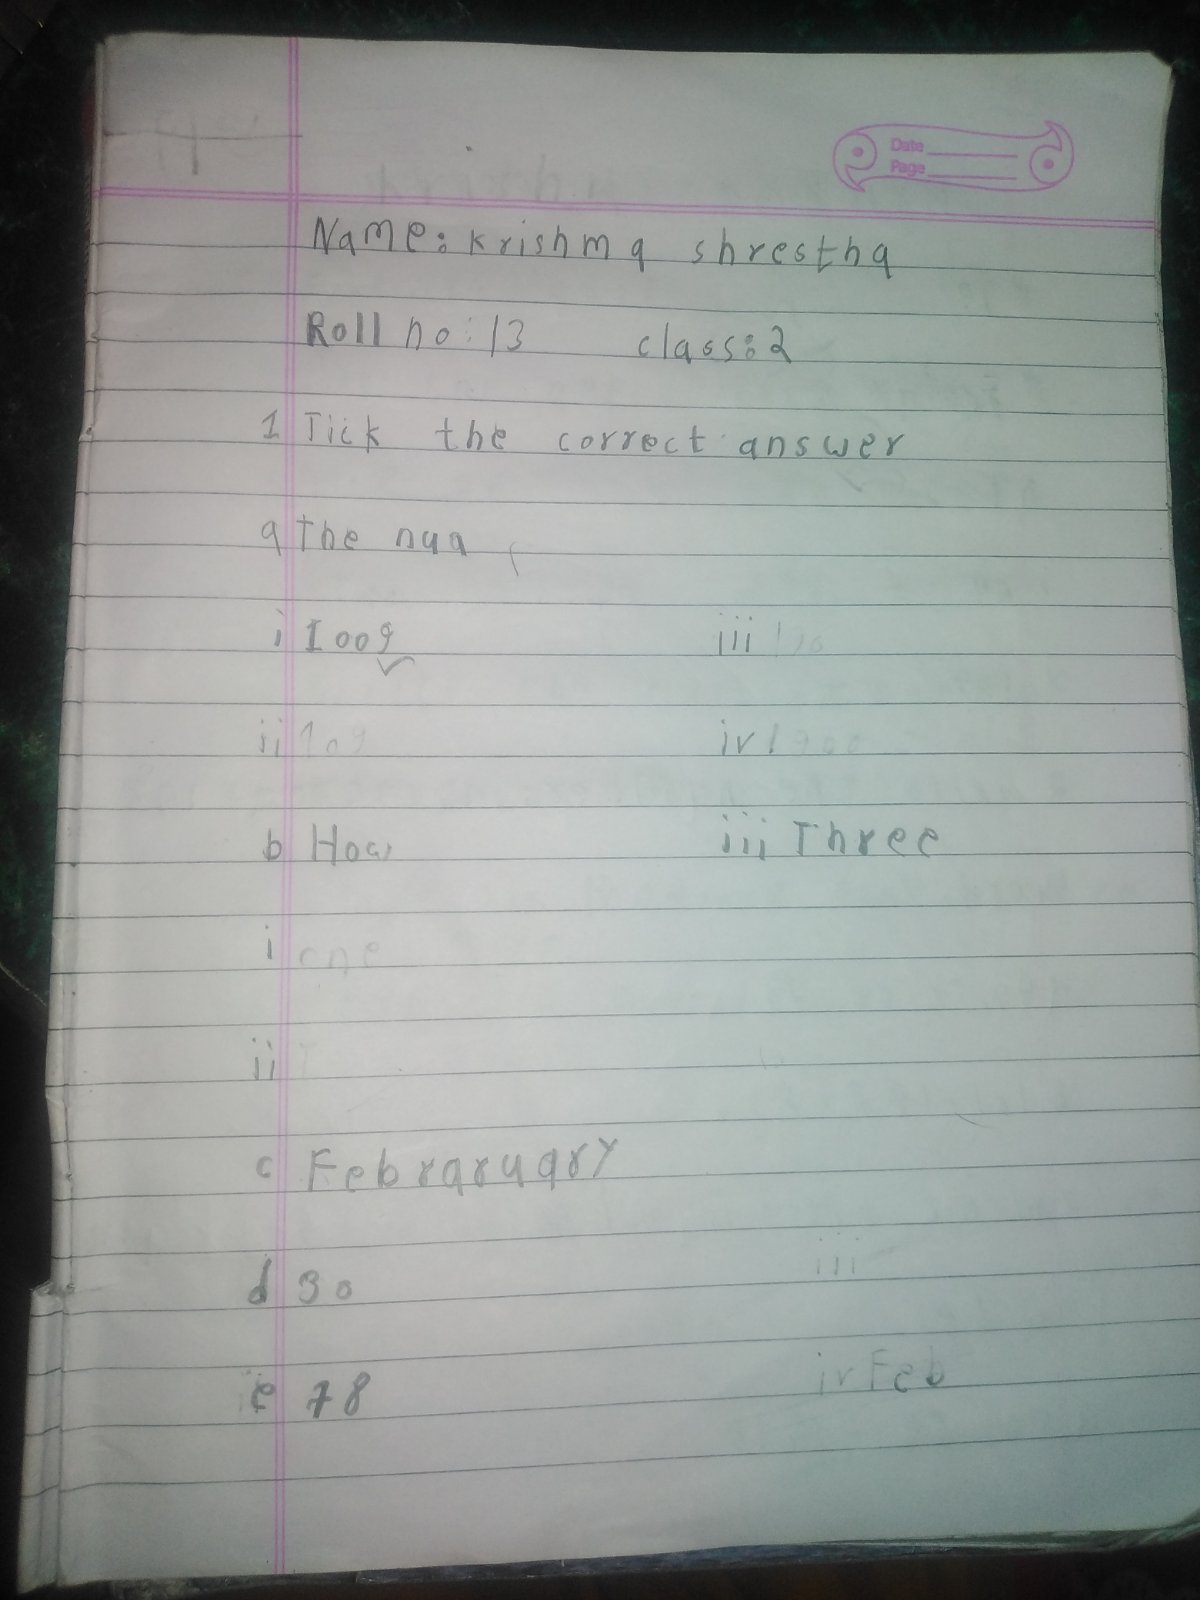 Date
Page
Name: Krishma shrestha
Roll no: 13 class: 2
1 Tick the correct answer
a the nua
i 1009 iii
ii 109 iv 1900
b How iii Three
i one
ii
c Febraruary
d 30 iii
e 78 iv Feb